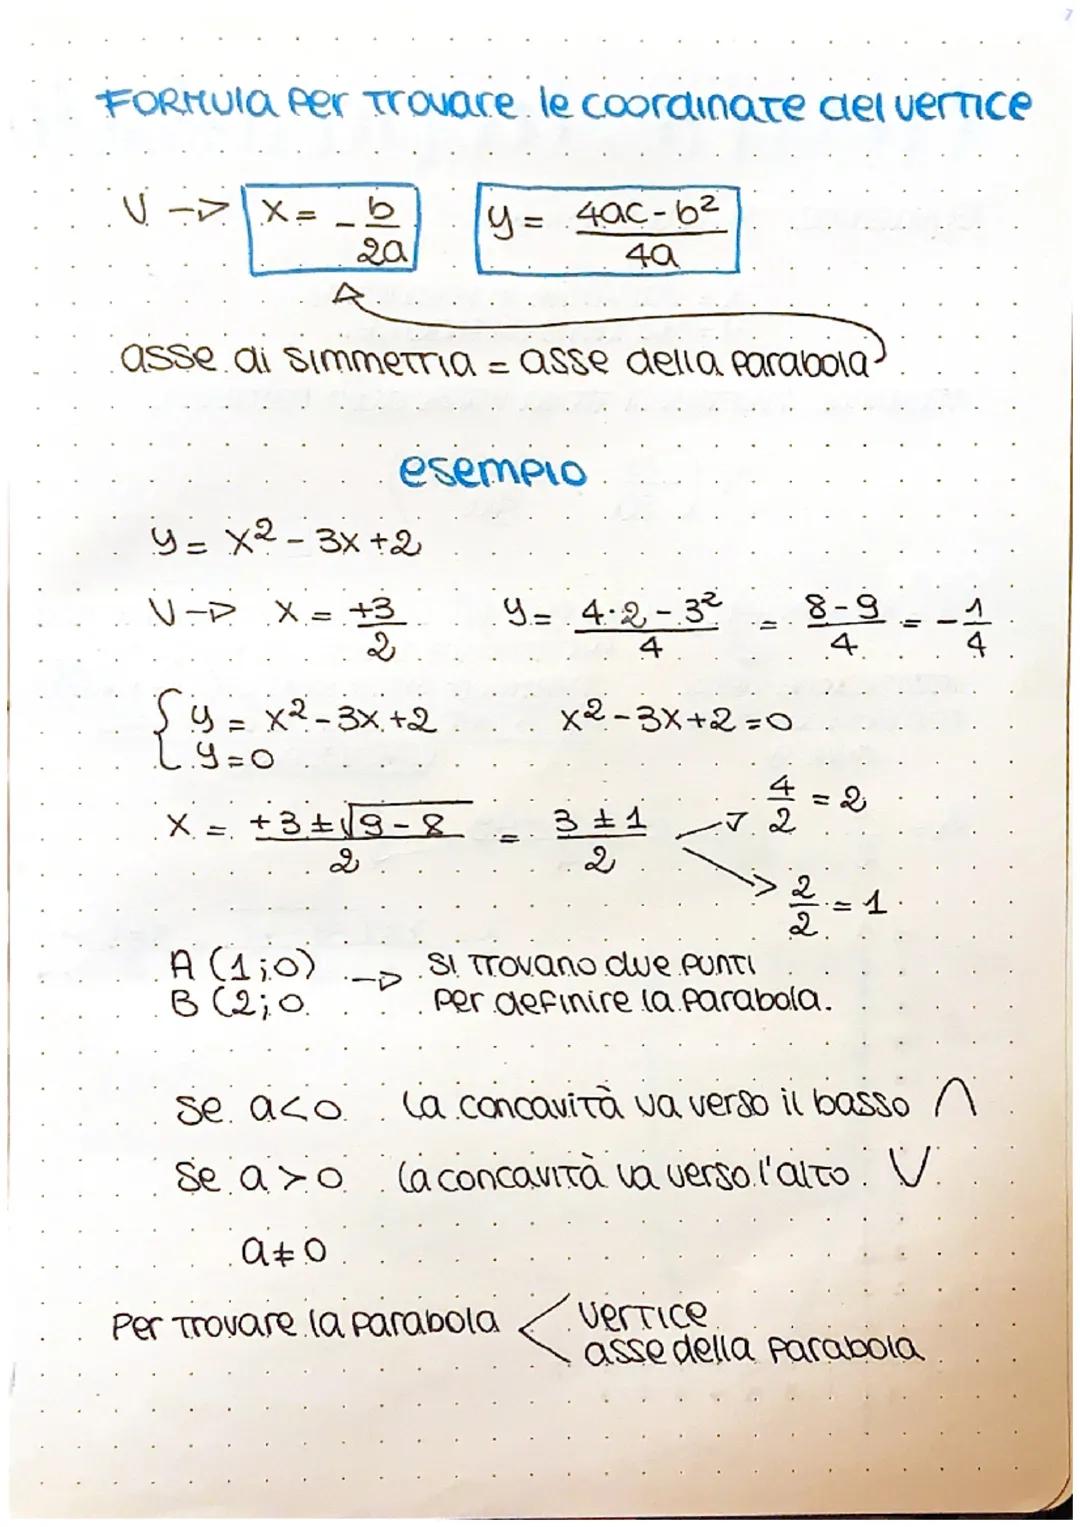 FORMULA PER TROVARE le COORDINATE del VERTICE
V → x = -b/2a    y = (4ac - b²)/4a
asse di simmetria = asse della parabola
esempio
y = x² - 3x + 2
V → x = +3/2    y = (4·2 - 3²)/4 = (8-9)/4 = -1/4
{ y = x² - 3x + 2    x² - 3x + 2 = 0
{ y = 0
x = (+3 ± √9-8)/2 = (3 ± 1)/2 → 4/2 = 2
→ 2/2 = 1
A (1;0) → si trovano due punti
B (2;0    per definire la parabola.
se a<0 la concavità va verso il basso ∩
se a>0 la concavità va verso l'alto. V
a≠0
Per trovare la parabola < vertice
asse della parabola